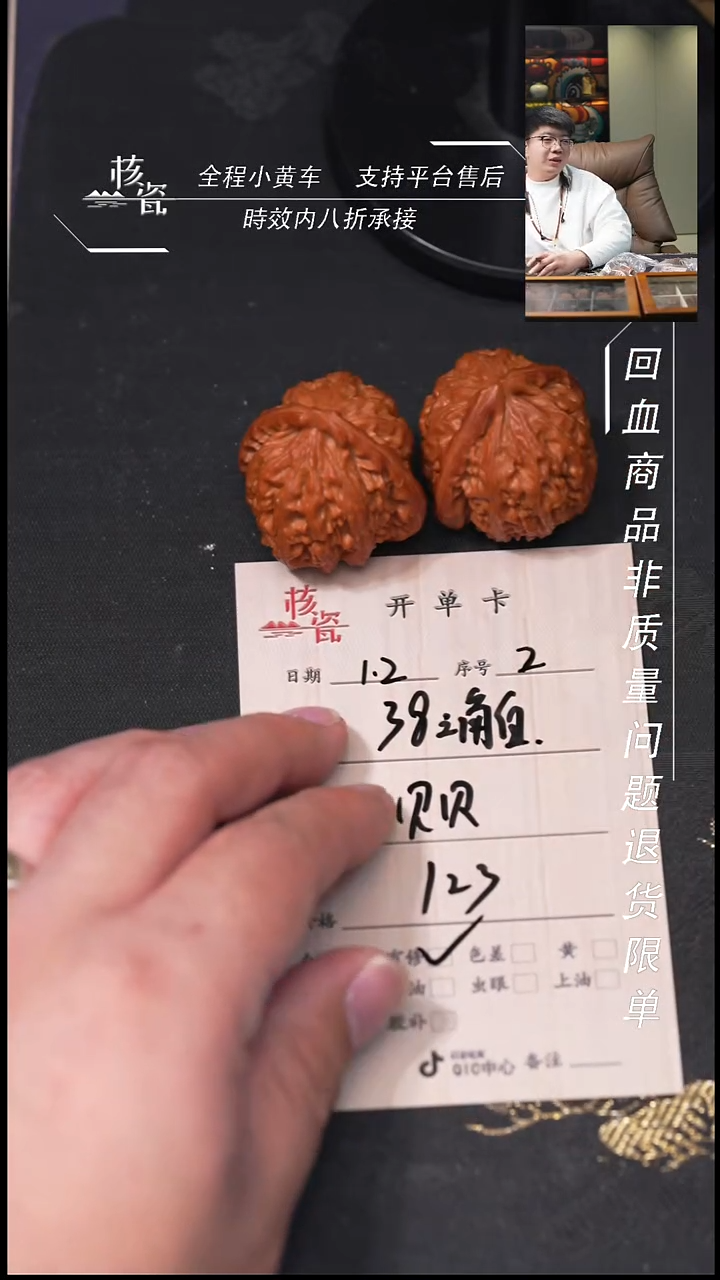 核瓷
全程小黄车 支持平台售后
時效内八折承接
回血商品非质量问题退货限单
核瓷
开单卡
日期 1.2 序号 2
38三角鱼.
贝贝
123
格
修 色差 黄
油 虫眼 上油
胶补
QIC中心 备注